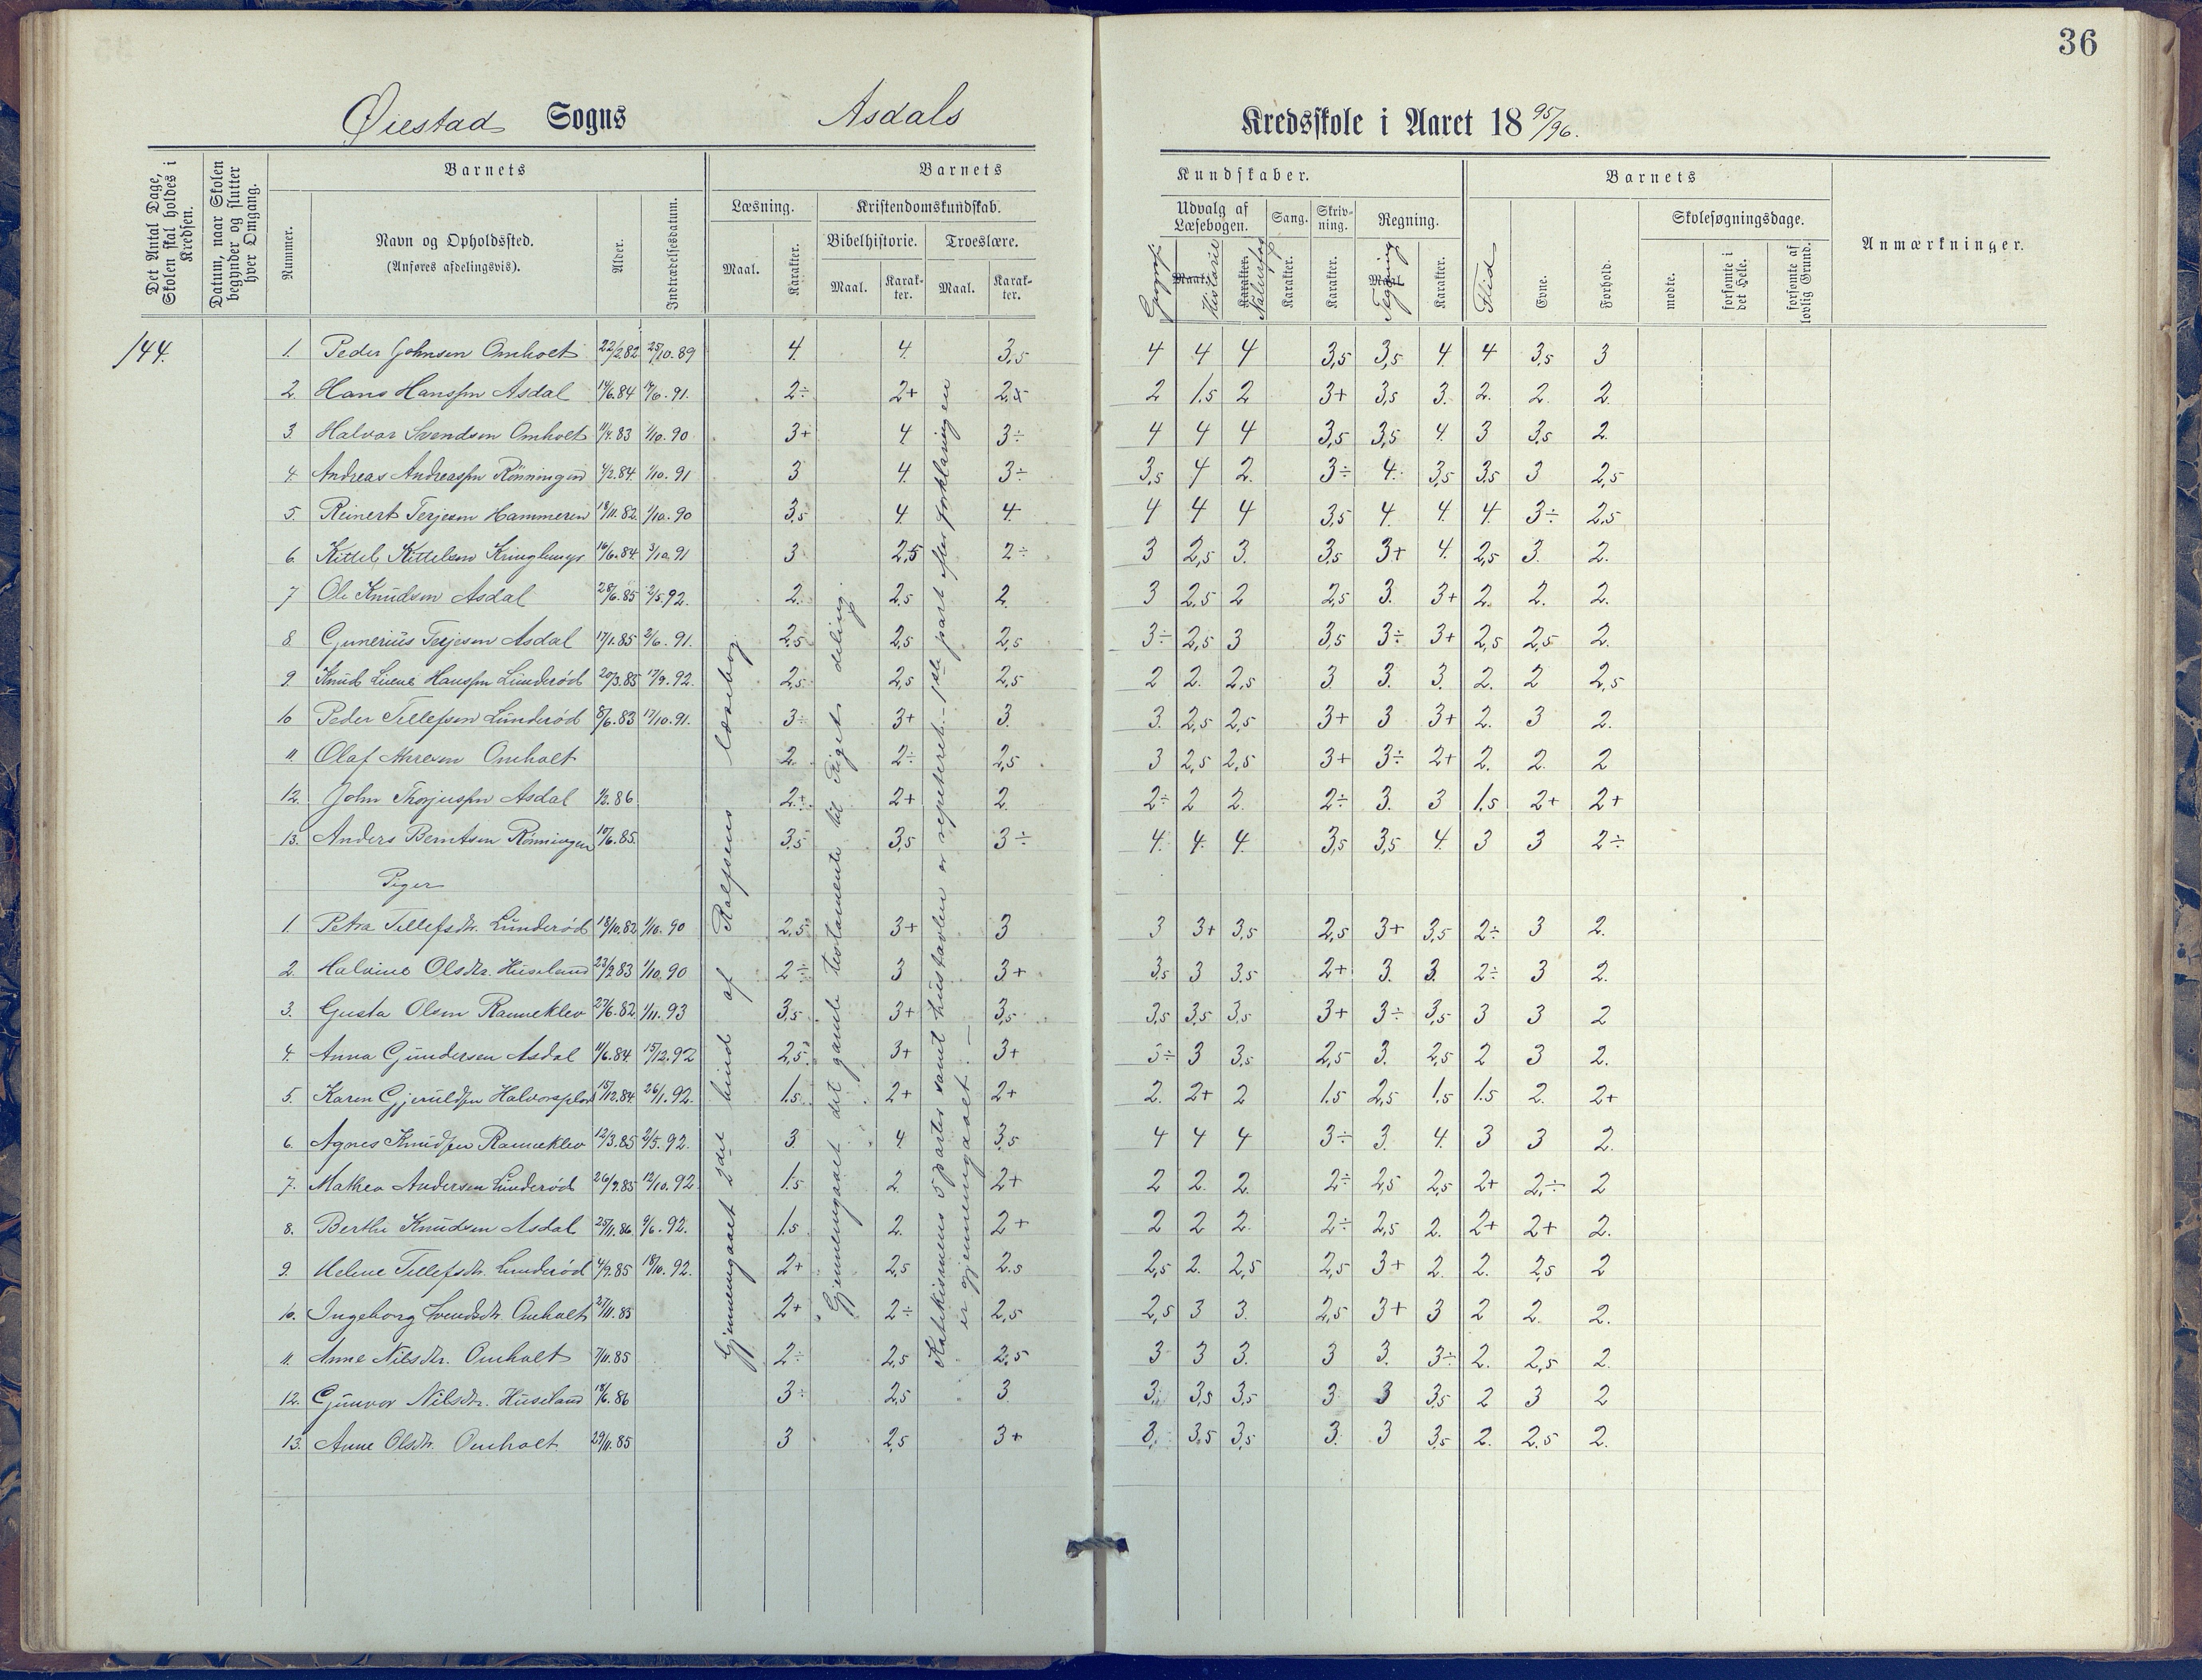 36
Øiestad Sogns Asdals Kredsskole i Aaret 1895/96.
Det Antal Dage, Skolen skal holdes i Kredsen.
Datum, naar Skolen begynder og slutter hver Omgang.
Barnets
Nummer.
Navn og Opholdssted.
(Anføres afdelingsvis).
Alder.
Indtrædelsesdatum.
Barnets Kundskaber.
Læsning.
Maal.
Karakter.
Kristendomskundskab.
Bibelhistorie.
Maal.
Karakter.
Troeslære.
Maal.
Karakter.
Udvalg af Læsebogen.
Geografi
Maal. Historie
Karakter. Naturfag
Sang.
Karakter.
Skrivning.
Karakter.
Regning.
Maal. Tegning
Karakter.
Barnets
Flid
Evne.
Forhold.
Skolesøgningsdage.
mødte.
forsømte i det Hele.
forsømte af lovlig Grund.
Anmærkninger.
144.
1. Peder Johnsen Omholt 22/2.82 25/10.89 4. 4. 3,5 4 4 4 3,5 3,5 4. 4 3,5 3
2. Hans Hanssen Asdal 14/6.84 14/6.91. 2÷ 2+ 2,5 2 1.5 2 3+ 3,5 3. 2. 2. 2.
3. Halvor Svendsen Omholt 11/4.83 1/10.90 3+ 4 3÷ 4 4 4 3,5 3,5 4. 3 3,5 2.
4. Andreas Andreassen Rönningen 4/2.84. 1/10.91 3 4. 3÷ 3,5 4 2. 3÷ 4. 3,5 3,5 3 2,5
5. Reinert Terjesen Hammeren 18/11.82. 1/10.90 3,5 4. 4. 4 4 4 3,5 4. 4. 4. 3÷ 2,5
6. Kittel Kittelsen Kringlemyr 16/6.84. 3/10.91 3 2,5 2÷ 3 2,5 3. 3,5 3+ 4. 2,5 3. 2.
7 Ole Knudsen Asdal 28/6.85 2/5.92. 2. 2,5 2. 3 2,5 2 2,5 3. 3+ 2. 2. 2.
8. Gunerius Terjesen Asdal 17/1.85 2/6.91. 2,5 2,5 2,5 3÷ 2,5 3 3,5 3÷ 3+ 2,5 2,5 2.
9. Knud Hanssen Lunderød 20/3.85 17/9.92. 2,5 2,5 2,5 2 2. 2,5 3. 3. 3. 2. 2 2,5
10 Peder Tellefsen Lunderød 8/6.83 17/10.91. 3÷ 3+ 3. 3. 2,5 2,5 3+ 3 3+ 2. 3 2.
11. Olaf Omholt 2. 2÷ 2,5 3 2,5 2,5 3+ 3÷ 2+ 2. 2. 2
12. John Thorjussen Asdal 1/2.86 2+ 2+ 2. 2÷ 2 2. 2÷ 3. 3 1.5 2+ 2+
13. Anders Berntsen Rönningen 10/6.85. 3,5 3,5 3÷ 4. 4. 4. 3,5 3,5 4. 3 3 2÷
Piger
1. Petra Tellefsdtr. Lunderød 18/10.82 1/10.90 2,5 3+ 3 3 3+ 3,5 2,5 3+ 3,5 2÷ 3 2.
2. Halvine Olsdtr. Huseland 23/2.83 1/10.90 2÷ 3 3+ 3,5 3 3,5 2+ 3. 3. 2÷ 3 2.
3. Gusta Olsen Ranneklev 27/6.82 1/11.93 3,5 3+ 3,5 3,5 3,5 3,5 3+ 3÷ 3,5 3 3 2
4. Anna Gundersen Asdal 11/6.84 15/12.92 2,5 3+ 3+ 3÷ 3 3,5 2,5 3. 2,5 2 3 2.
5. Karen Gjeruldsen 15/12.84 26/1.92. 1.5 2+ 2+ 2. 2+ 2 1.5 2,5 1.5 1.5 2. 2+
6. Agnes Knudsen Ranneklev 12/3.85 2/5.92. 3 4 3,5 4 4 4 3÷ 3. 4. 3 3 2.
7. Mathea Andersen Lunderød 26/9.85 12/10.92 1.5 2. 2+ 2 2. 2. 2÷ 2,5 2,5 2+ 2÷ 2
8. Berthe Knudsen Asdal 25/11.86 9/6.92. 1.5 2. 2+ 2 2 2. 2÷ 2,5 2. 2+ 2+ 2.
9. Helene Tellefsdtr. Lunderød 4/9.85 18/10.92. 2+ 2,5 2.5 2,5 2. 2,5 2,5 3+ 2. 2. 2,5 2
10. Ingeborg Svendsdtr. Omholt 27/11.85 2+ 2÷ 2,5 2,5 3 3. 2,5 3+ 3 2 2. 2.
11. Anne Nilsdtr. Omholt 7/11.85 2÷ 2,5 2,5 3 3 3. 3 3. 3÷ 2. 2,5 2.
12. Gunvor Nilsdtr. Huseland 18/6.86 3÷ 2,5 3 3. 3,5 3,5 3 3 3,5 2 3 2
13. Anne Olsdtr. Omholt 29/11.85 3 2,5 3+ 3,5 3,5 3. 3 3,5 2. 2,5 2.
Gjennemgaaet 2det bind af Rolfsens læsebog
Gjennemgaaet det gamle testamente til Rigets deling.
Katekismens 5 parter samt hustavlen er repeteret. 1ste part efter forklaringen
er gjennemgaaet. —